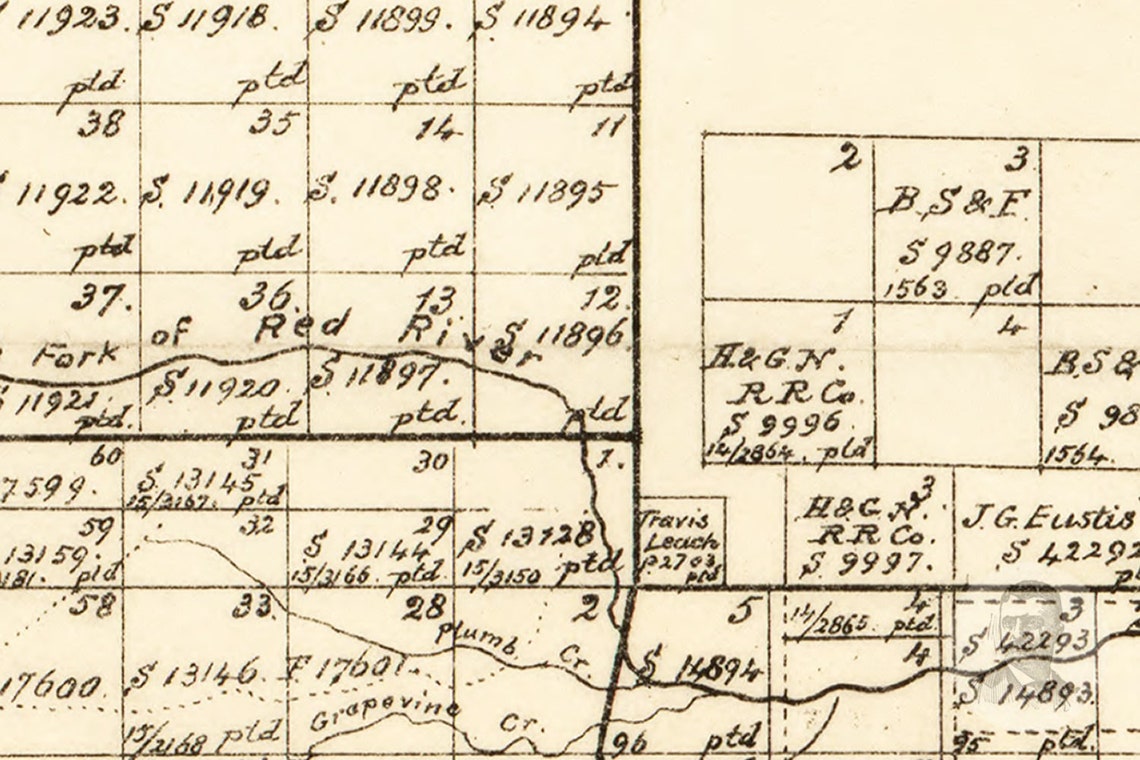 11923. S 11918. S 11899. S 11894
ptd ptd ptd ptd
38 35 14 11
11922. S. 11919. S. 11898. S 11895
ptd ptd ptd ptd
37. 36. 13 12.
Fork of Red River
S 11896
S 11921. S. 11920. S 11897.
ptd. ptd ptd. ptd
2 3
B. S & F.
S 9887.
1563 ptd
1 4
H & G. N.
R R Co.
S 9996.
14/2864. ptd
B. S &
S 98
1564.
60 31 30 1.
7599. S. 13145
15/3167. ptd
59 32 29
13159. S 13144 S 13128
181. ptd 15/3166. ptd. 15/3150 ptd
Travis
Leach
P 2703
ptd
3
H & G. N.
R R Co.
S 9997.
J. G. Eustis
S 42292
58 33. 28 2
17600. S 13146. F 17601.
15/2168 ptd
Plumb Cr.
Grapevine Cr.
5
S 14894
96 ptd
14/2865. ptd
4
4
3
S 42293
S 14893.
95 ptd.